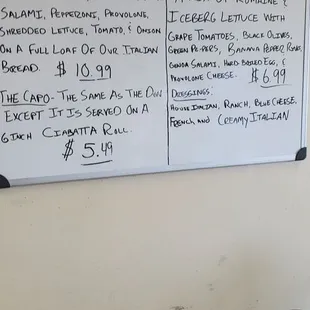 Salami, Pepperoni, Provolone,
Shredded Lettuce, Tomato, & Onion
On A Full Loaf Of Our Italian
Bread. $10.99
The Capo- The Same As The Don
Except It Is Served On A
6 inch Ciabatta Roll.
$5.49
Iceberg Lettuce With
Grape Tomatoes, Black Olives,
Green Peppers, Banana Pepper Rings,
Genoa Salami, Hard Boiled Egg, &
Provolone Cheese. $6.99
Dressings:
House Italian, Ranch, Blue Cheese,
French and Creamy Italian